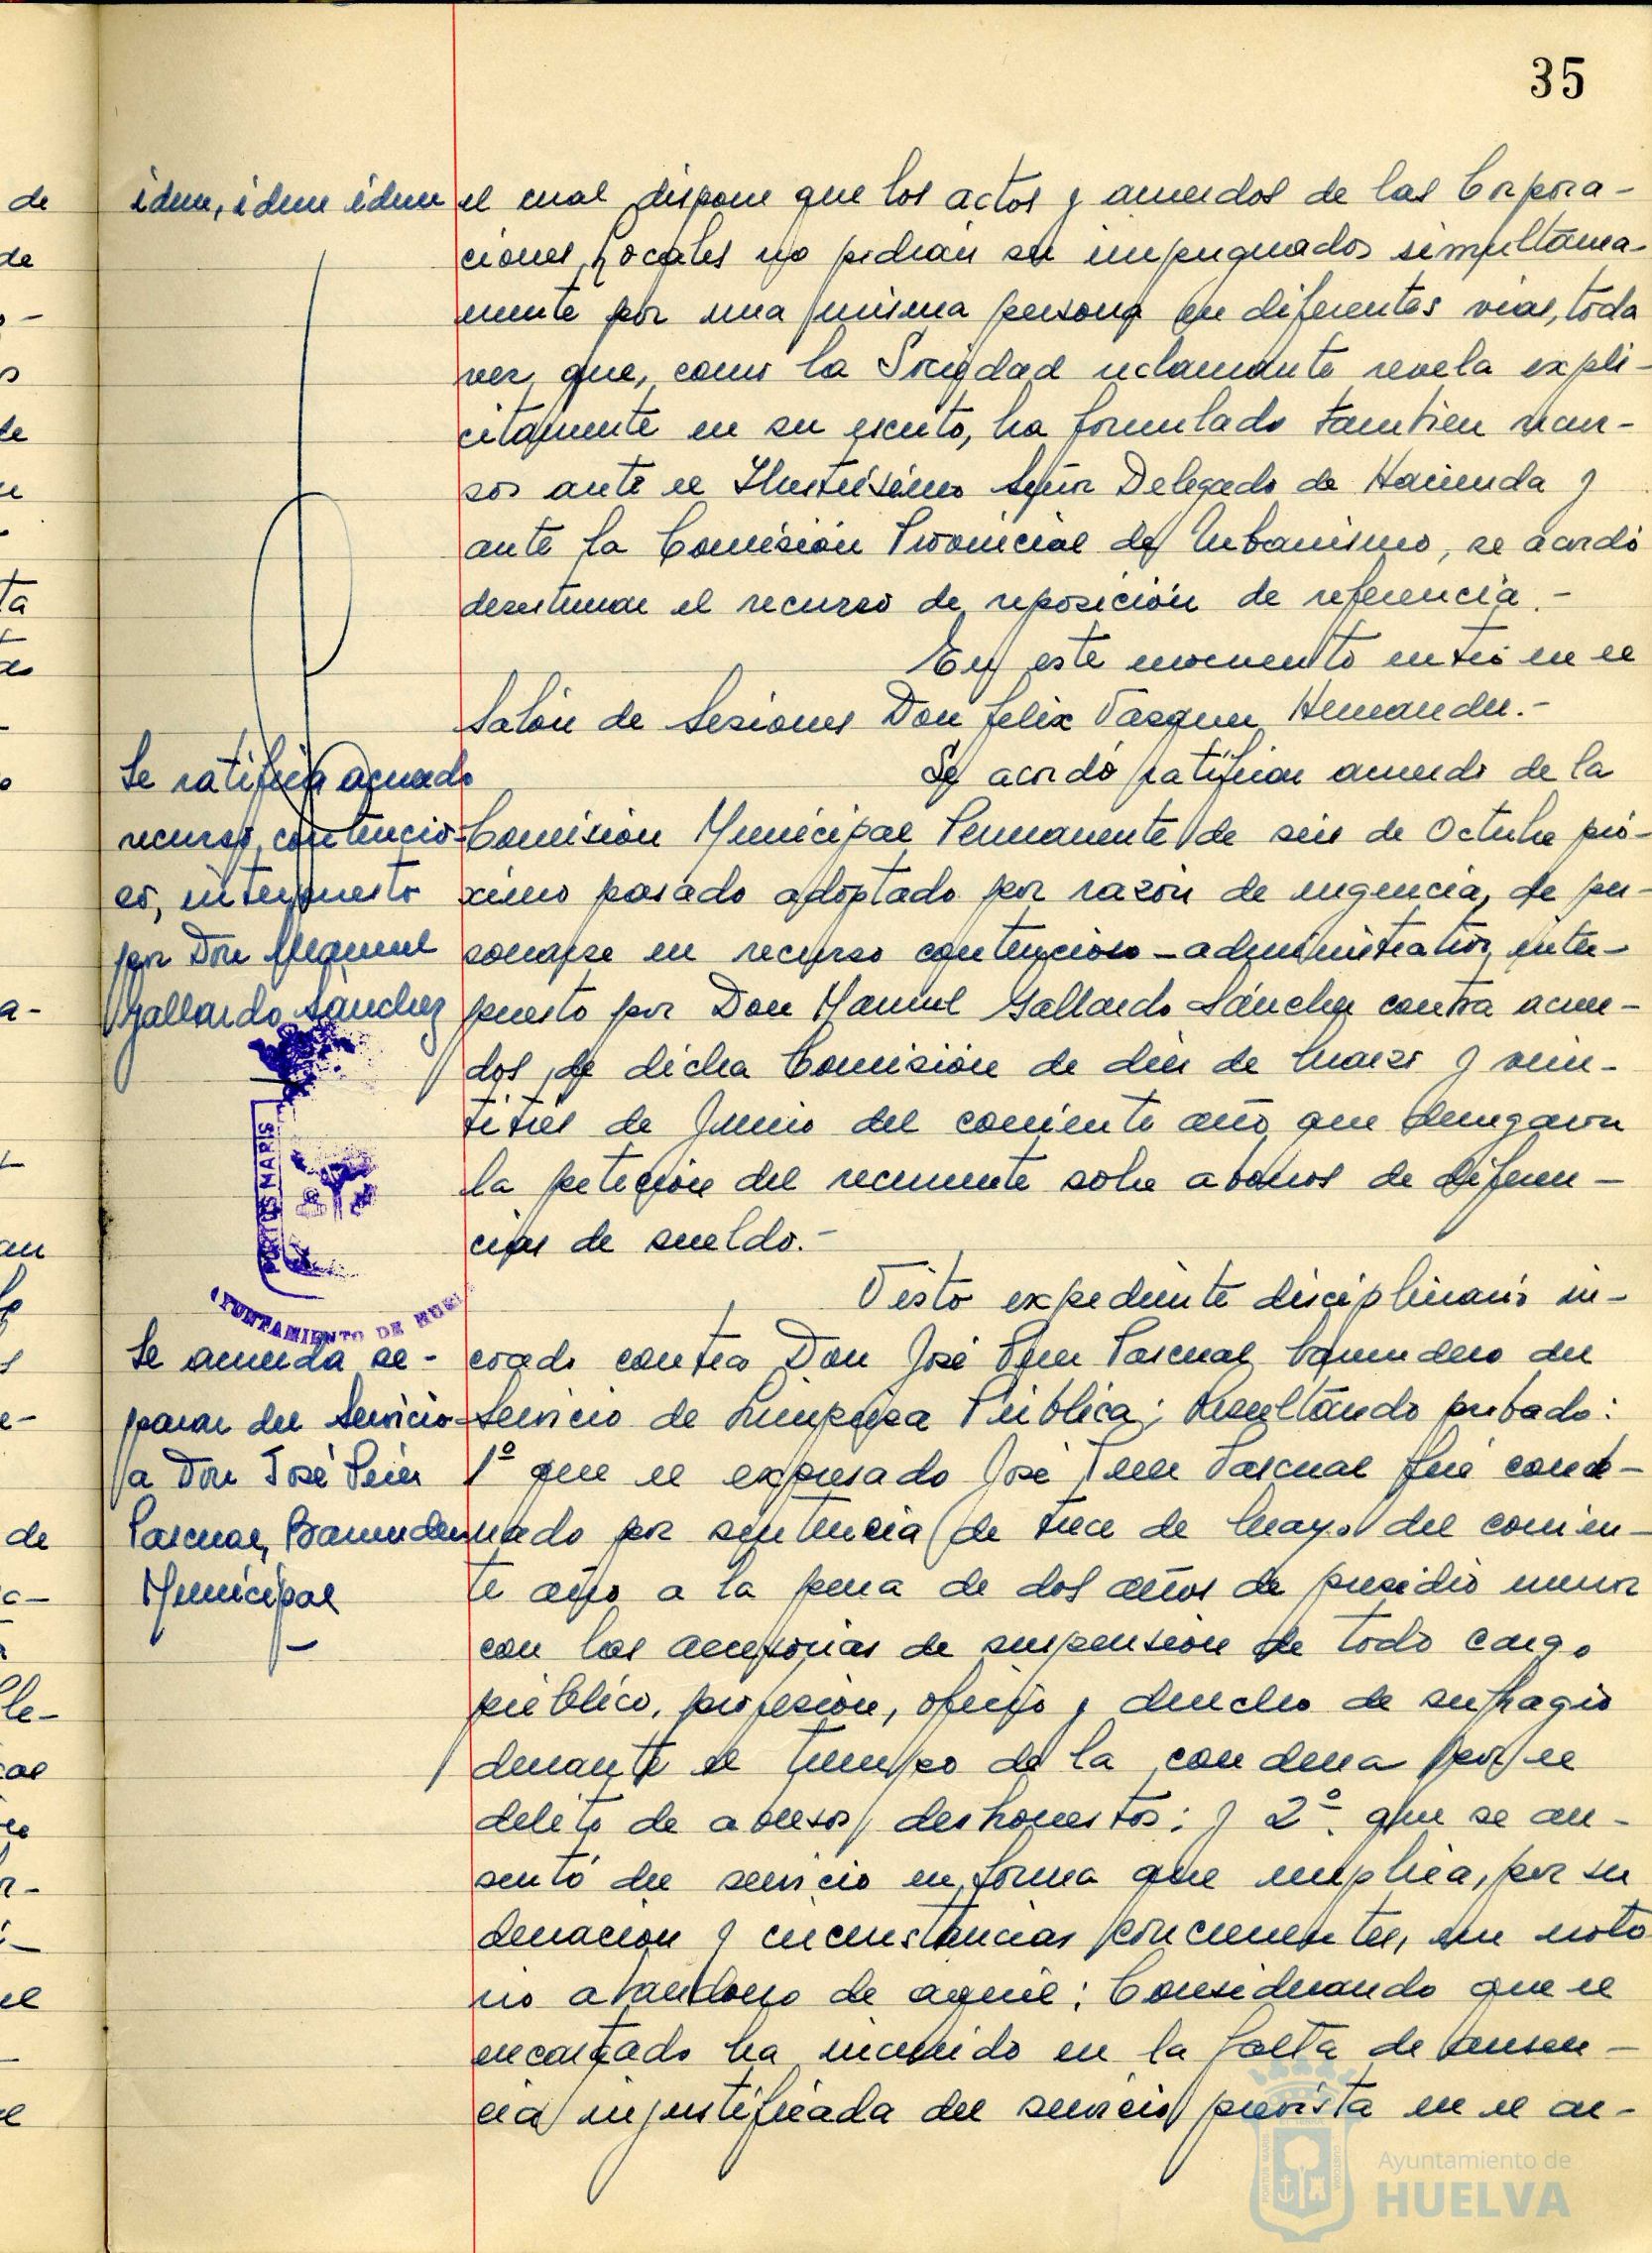 35
idem, idem idem
el cual dispone que los actos y acuerdos de las Corpora-
ciones Locales no podrán ser impugnados simultánea-
mente por una misma persona en diferentes vías, toda
vez que, como la Sociedad reclamante revela explí-
citamente en su escrito, ha formulado tambien recur-
sos ante el Ilustrísimo Señor Delegado de Hacienda y
ante la Comisión Provincial de Urbanismo, se acordó
desestimar el recurso de reposición de referencia.-
En este momento entró en el
Salón de Sesiones Don Felix Vasquez Hernandez.-
Se ratifica acuerdo
recurso contencio-
so, interpuesto
por Don Manuel
Gallardo Sánchez
Se acordó ratificar acuerdo de la
Comisión Municipal Permanente de seis de Octubre pró-
ximo pasado adoptado por razón de urgencia, de per-
sonarse en recurso contencioso-administrativo, inter-
puesto por Don Manuel Gallardo Sánchez contra acuer-
dos de dicha Comisión de diez de Marzo y vein-
titres de Junio del corriente año que denegaron
la petición del recurrente sobre abonos de diferen-
cias de sueldo.-
PORTUS MARIS
AYUNTAMIENTO DE HUEL
Se acuerda se-
parar del Servicio
a Don José Pérez
Pascual, Barrendero
Municipal
Visto expediente disciplinario in-
coado contra Don José Pérez Pascual, barrendero del
Servicio de Limpieza Pública; Resultando probado:
1º que el expresado José Pérez Pascual fué conde-
nado por sentencia de trece de Mayo del corrien-
te año a la pena de dos años de presidio menor
con las accesorias de suspensión de todo cargo
público, profesión, oficio y derecho de sufragio
durante el tiempo de la condena por el
delito de abusos deshonestos; y 2º. que se au-
sentó del servicio en forma que implica, por su
duración y circunstancias concurrentes, un noto
rio abandono de aquél; Considerando que el
encartado ha incurrido en la falta de ausen-
cia injustificada del servicio prevista en el ar-
Ayuntamiento de
HUELVA